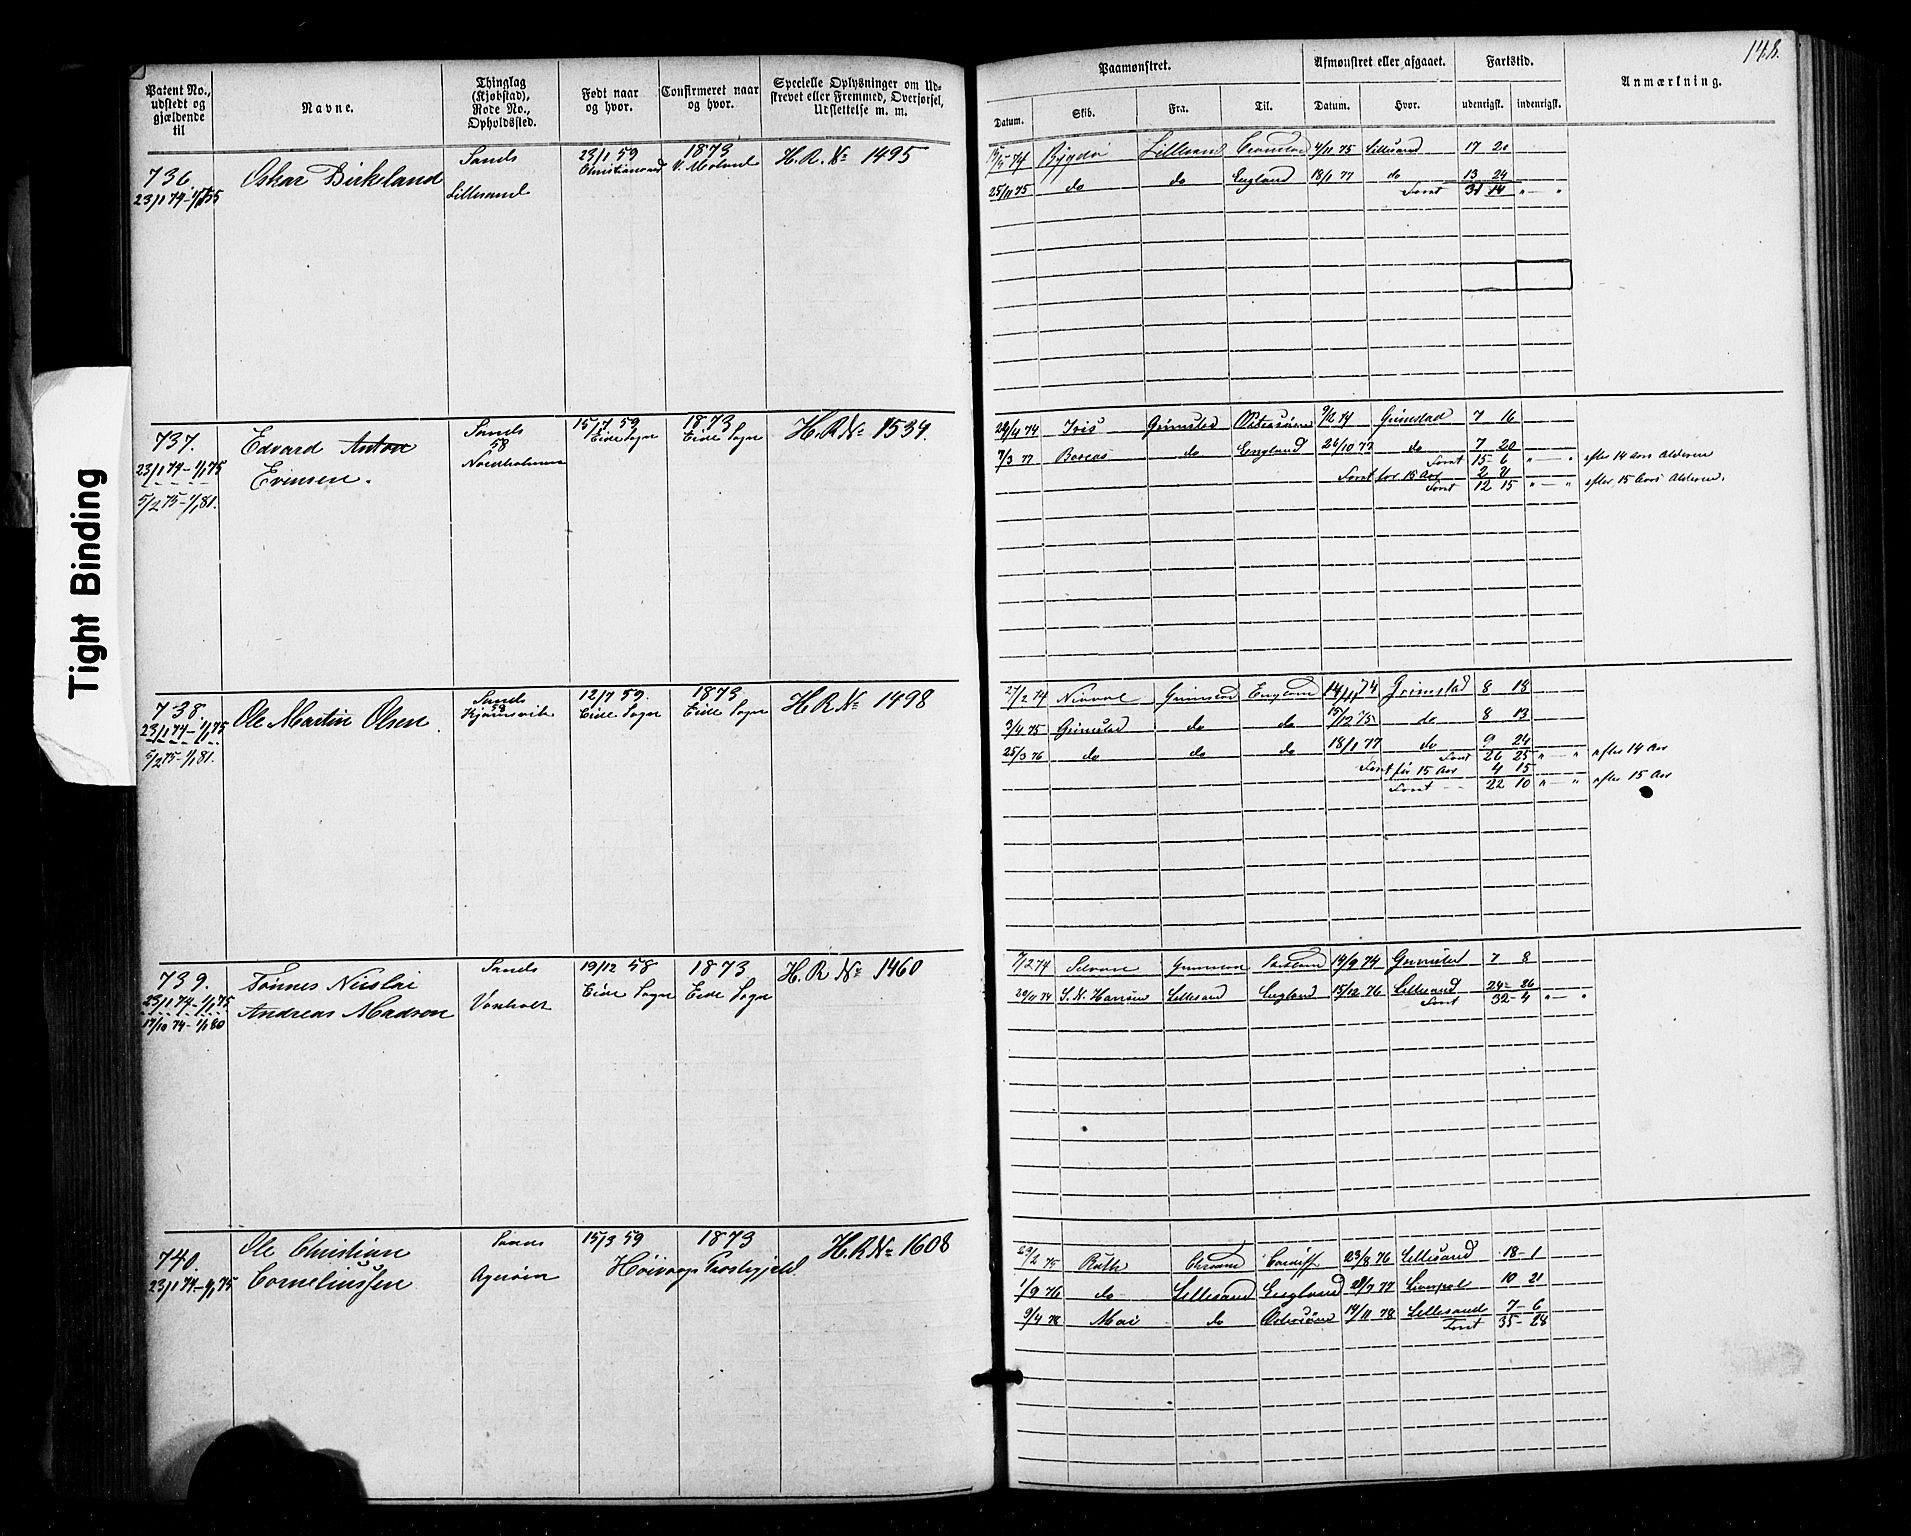 148.
Patent No., udstedt og gjældende til
Navne.
Thinglag (Kjøbstad), Rode No., Opholdssted.
Født naar og hvor.
Confirmeret naar og hvor.
Specielle Oplysninger om Udskrevet eller Fremmed, Overførsel, Udslettelse m. m.
Paamønstret.
Afmønstret eller afgaaet.
Fartstid.
Anmærkning.
Datum. Skib. Fra. Til. Datum. Hvor. udenrigsk. indenrigsk.
Tight Binding
736 Oskar Birkeland Sands 23/1 59 1873 H. R. No 1495
Christianssand V. Moland
Lillesand
Bygdø Lillesand 4/11 75 Lillesand 17 20
25/11 75 do do England 18/1 77 do 13 24
Fort 31 14 " — "
737. Edvard Anton Sands 15/7 59 1873 H. R. No 1534.
23/1 74 – 1/1 75 58 Eide Sogn Eide Sogn
Nordholmen
Evensen.
5/2 75 – 1/1 81.
29/4 74 Iris Grimstad Østersøen 9/12 74 Grimstad 7 16
7/3 77 Boreas do England 26/10 77 do 7 20
15 – 6 " — " efter 14 Aars Alderen
for 15 Aar 2 21
12 15 " — " efter 15 Aars Alderen.
738. Ole Martin Olsen. Sands 12/7 59. 1873 H R No 1498
23/1 74 – 1/1 75 58 Eide Sogn Eide Sogn
Kjørnsvik
5/2 75 – 1/1 81.
27/2 74 Grimstad England 14/11 74 Grimstad 8 18
3/4 75 Grimstad do do 15/12 75 do 8 13
25/3 76 do do do 18/1 77 do 9 24
26 25 " — " efter 14 Aar
før 15 Aar 4 15
22 10 " — " efter 15 Aar
739. Tønnes Nicolai Sands 19/12 58 1873 H. R No 1460
23/1 74 – 1/1 75 Eide Sogn Eide Sogn
Andreas Madsen Voxholt
17/10 74 – 1/1 80
Grimstad 19/9 74 Grimstad 7 8
29/11 74 S. N. Hansen Lillesand England 15/12 76 Lillesand 24 – 26
32 – 4 " — "
740. Ole Christian Sands 15/3 59 1873 H. R No 1608
23/1 74 – 1/1 75 Corneliussen Agerøen Høivaags Præstegjeld
23/2 75 Ruth Cardiff 23/8 76 Lillesand 18 – 1
1/9 76 do Lillesand England 28/7 77 Liverpol 10 21
9/4 78 Mai do Østersøen 14/11 78 Lillesand 7 – 6
35 – 28